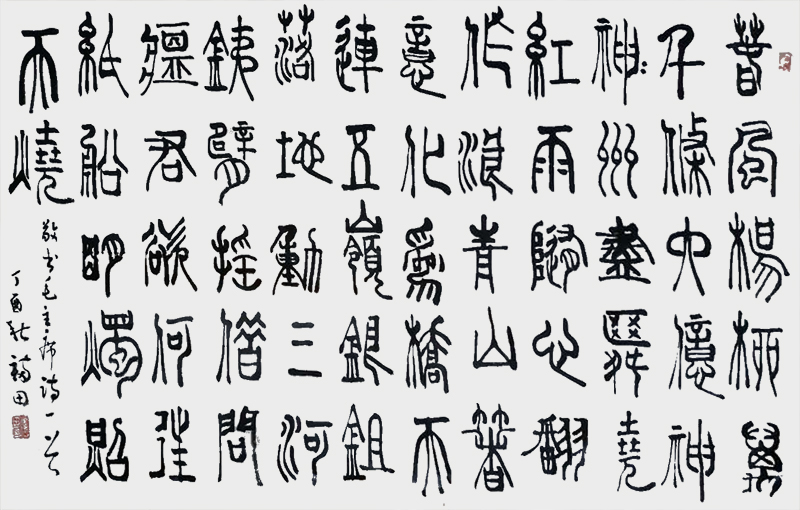 春風楊柳萬
千條六億神
神州盡舜堯
紅雨隨心翻
作浪青山箸
意化為橋天
連五嶺銀鉏
落地動三河
銕臂搖借問
瘟君欲何往
紙船明燭照
天燒
敬书毛主席诗一首
丁酉秋